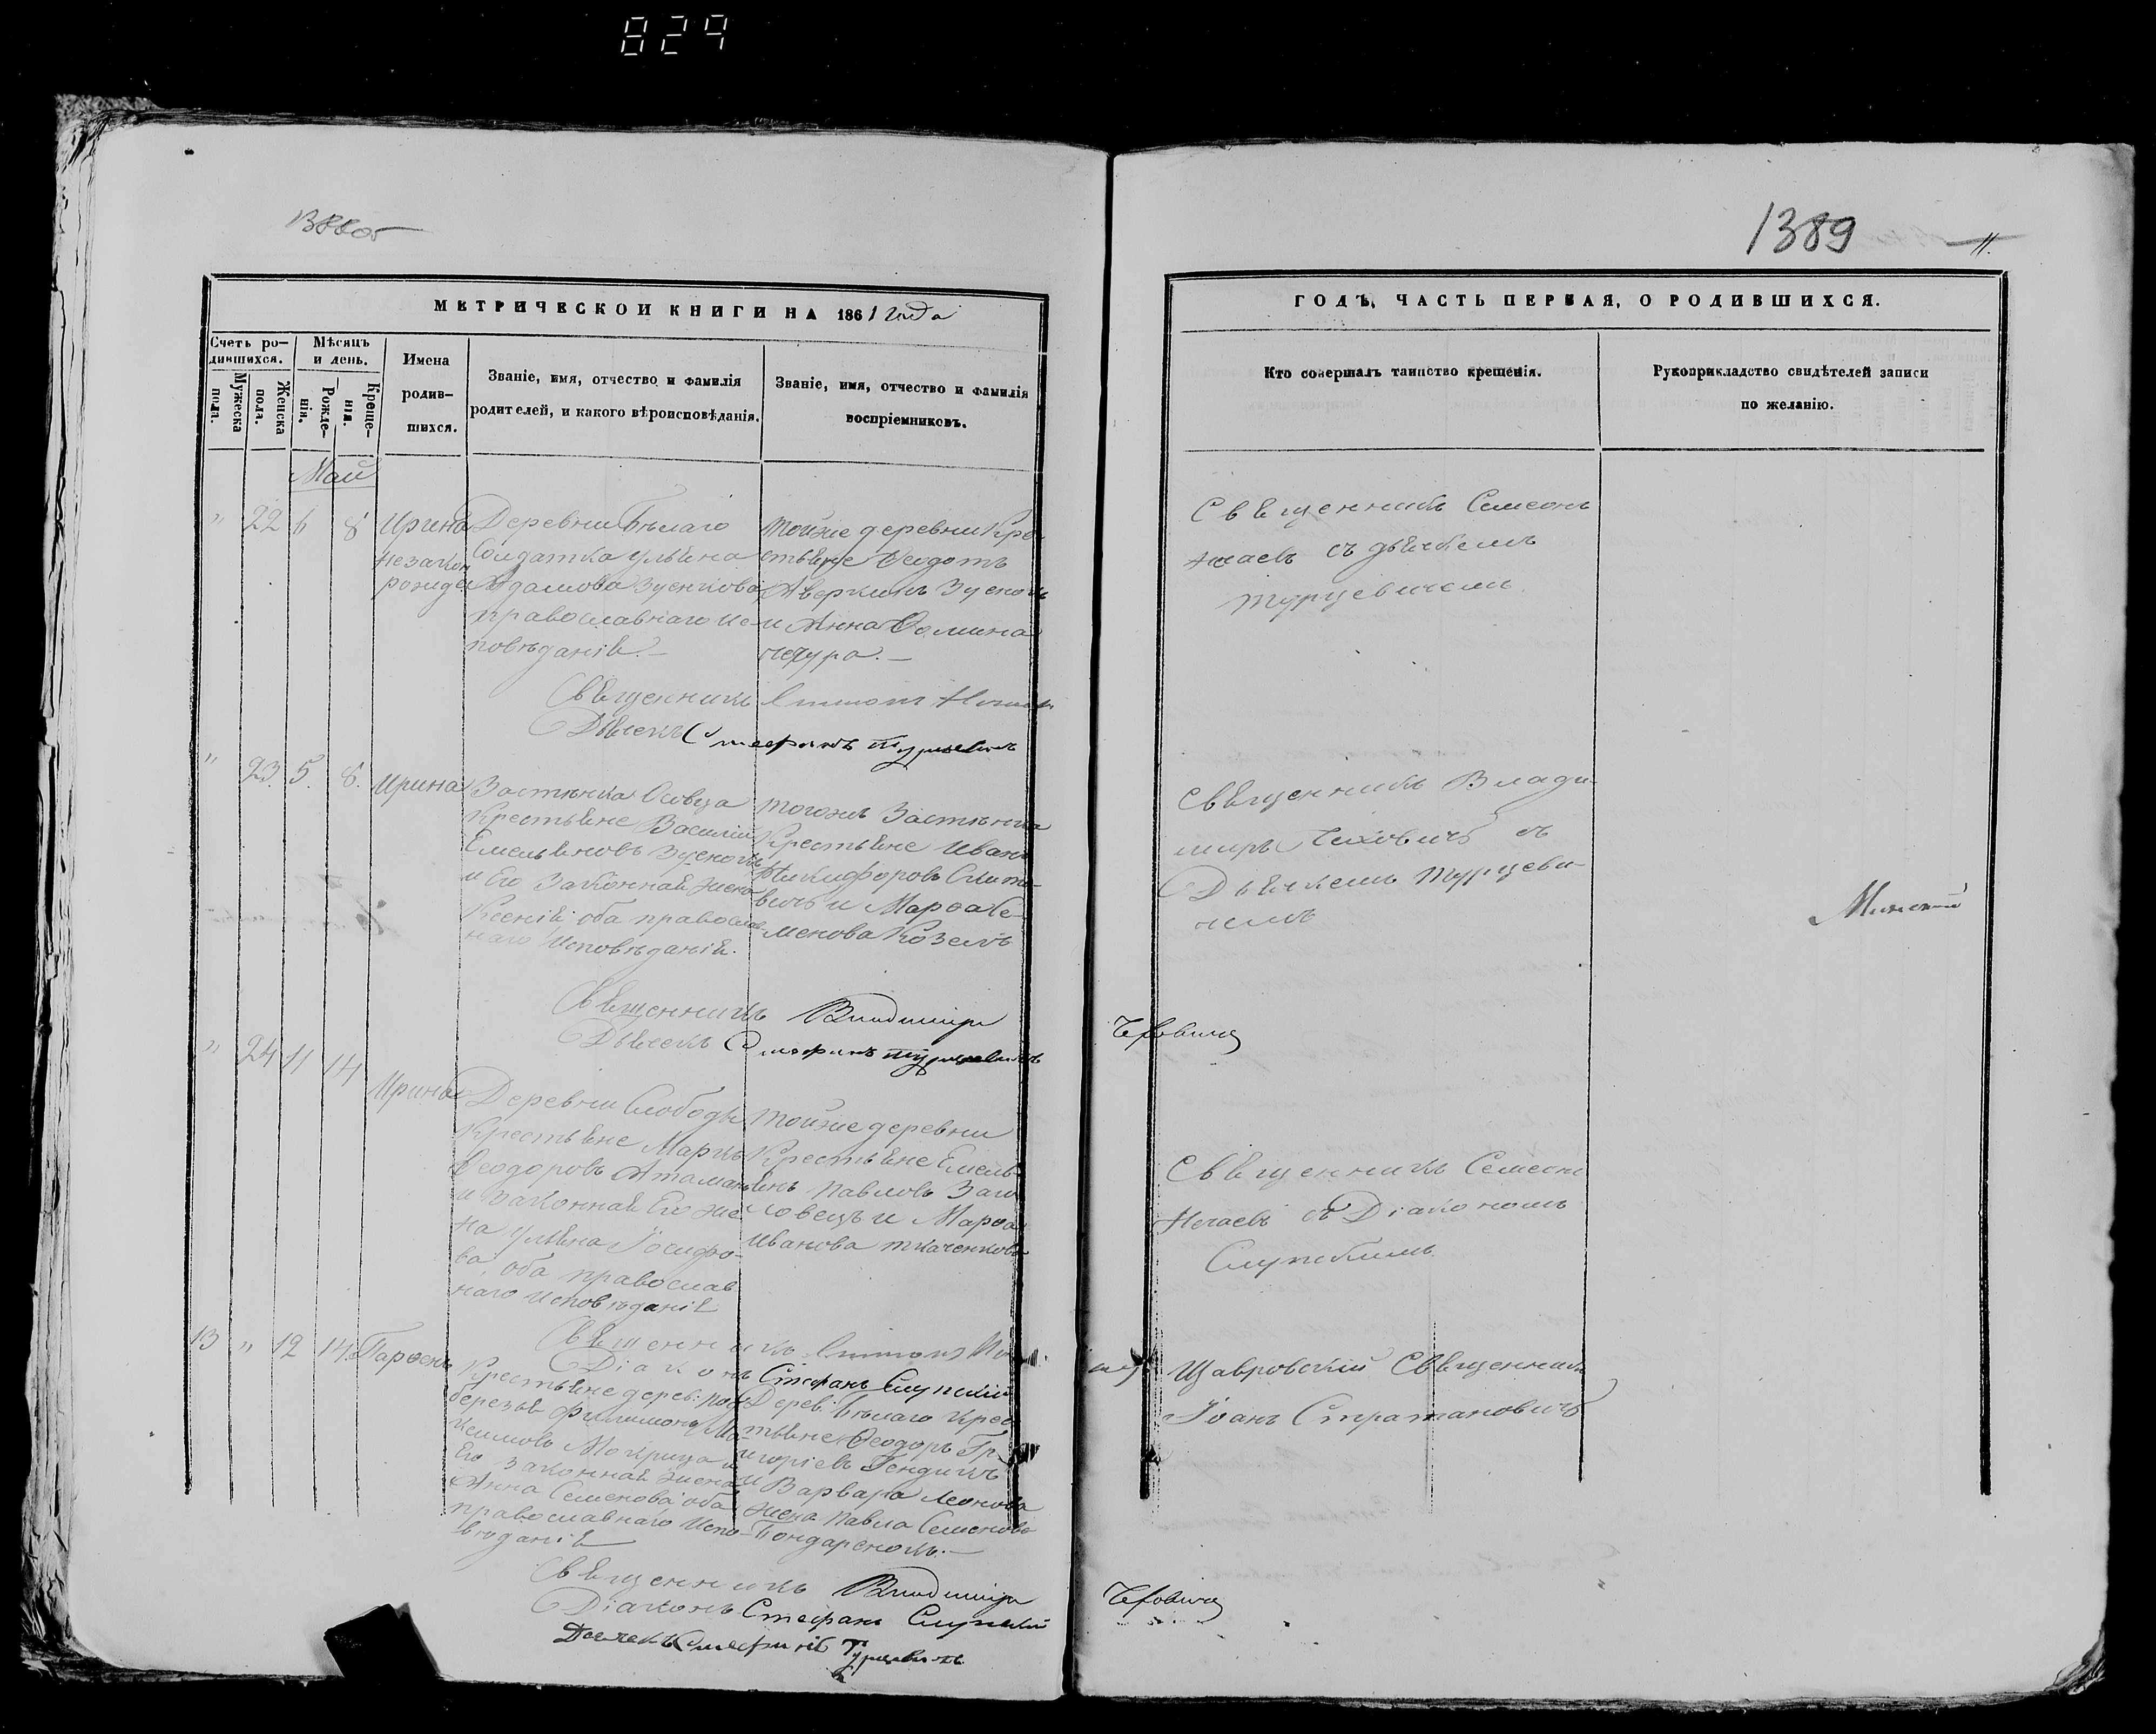 829
1389
11.
МЕТРИЧЕСКОЙ КНИГИ НА 1861 года
ГОДЪ, ЧАСТЬ ПЕРВАЯ, О РОДИВШИХСЯ.
Счетъ ро-
дившихся.
Мужеска
пола.
Женска
пола.
Мѣсяцъ
и день.
Рожде-
нія.
Креще-
нія.
Имена
родив-
шихся.
Званіе, имя, отчество и фамилія
родителей, и какого вѣроисповѣданія.
Званіе, имя, отчество и фамилія
воспріемниковъ.
Кто совершалъ таинство крещенія.
Рукоприкладство свидѣтелей записи
по желанію.
Май
" 22 6 8
Ирина
незакон
рожде
Деревни Бѣлаго
Солдатка Ульяна
Адамова Зуенкова
православнаго ис-
повѣданія. —
Тойже деревни Кре
стьяне Ѳеодотъ
Аверкинъ Зуенокъ
и Анна Ѳомина
Священникъ Семеонъ
съ дьячкемъ
Турцевичемъ
Священникъ
Дьячекъ Стефанъ Турцевичъ
" 23. 5. 8.
Ирина
Застѣнка Осовца
Крестьяне Василій
Емельяновъ Зуенокъ
и Его Законная жена
Ксенія оба православ-
наго Исповѣданія.
Тогожъ Застѣнка
Крестьяне Иванъ
Никифоровъ
вичъ и Марѳа Се-
менова Козелъ
Священникъ Влади-
миръ Чеховичъ съ
Дьячкемъ Турцеви-
чемъ
Священникъ Владиміръ Чеховичъ
Дьячекъ Стефанъ Турцевичъ
" 24 11 14
Ирина
Деревни Слободы
Крестьяне Маркъ
Ѳеодоровъ Атаман
и Законная Его же
на Ульяна Іосифо-
ва оба православ
наго Исповѣданія
Тойже деревни
Крестьяне Емель-
янъ Павловъ Заго
ловецъ и Марѳа
Иванова Ткаченкова
Священникъ Семеонъ
Нечаевъ съ Діакономъ
Слупскимъ
Священникъ
Діаконъ Стефанъ Слупскій
13 " 12 14.
Парѳенъ
Крестьяне дерев: Под
березья Филимонъ Ма
ксимовъ Мокрица и
Его законная жена
Анна Семенова оба
православнаго Испо-
вѣданія
Дерев: Бѣлаго Крес
тьяне Ѳеодоръ Гр
игоріевъ Гендикъ
и Варвара Леонова
жена Павла Семенова
Бондаренокъ. —
Щавровскій Священникъ
Іоанъ Стратановичъ
Священникъ Владиміръ Чеховичъ
Діаконъ Стефанъ Слупскій
Дьячекъ Стефанъ Турцевичъ